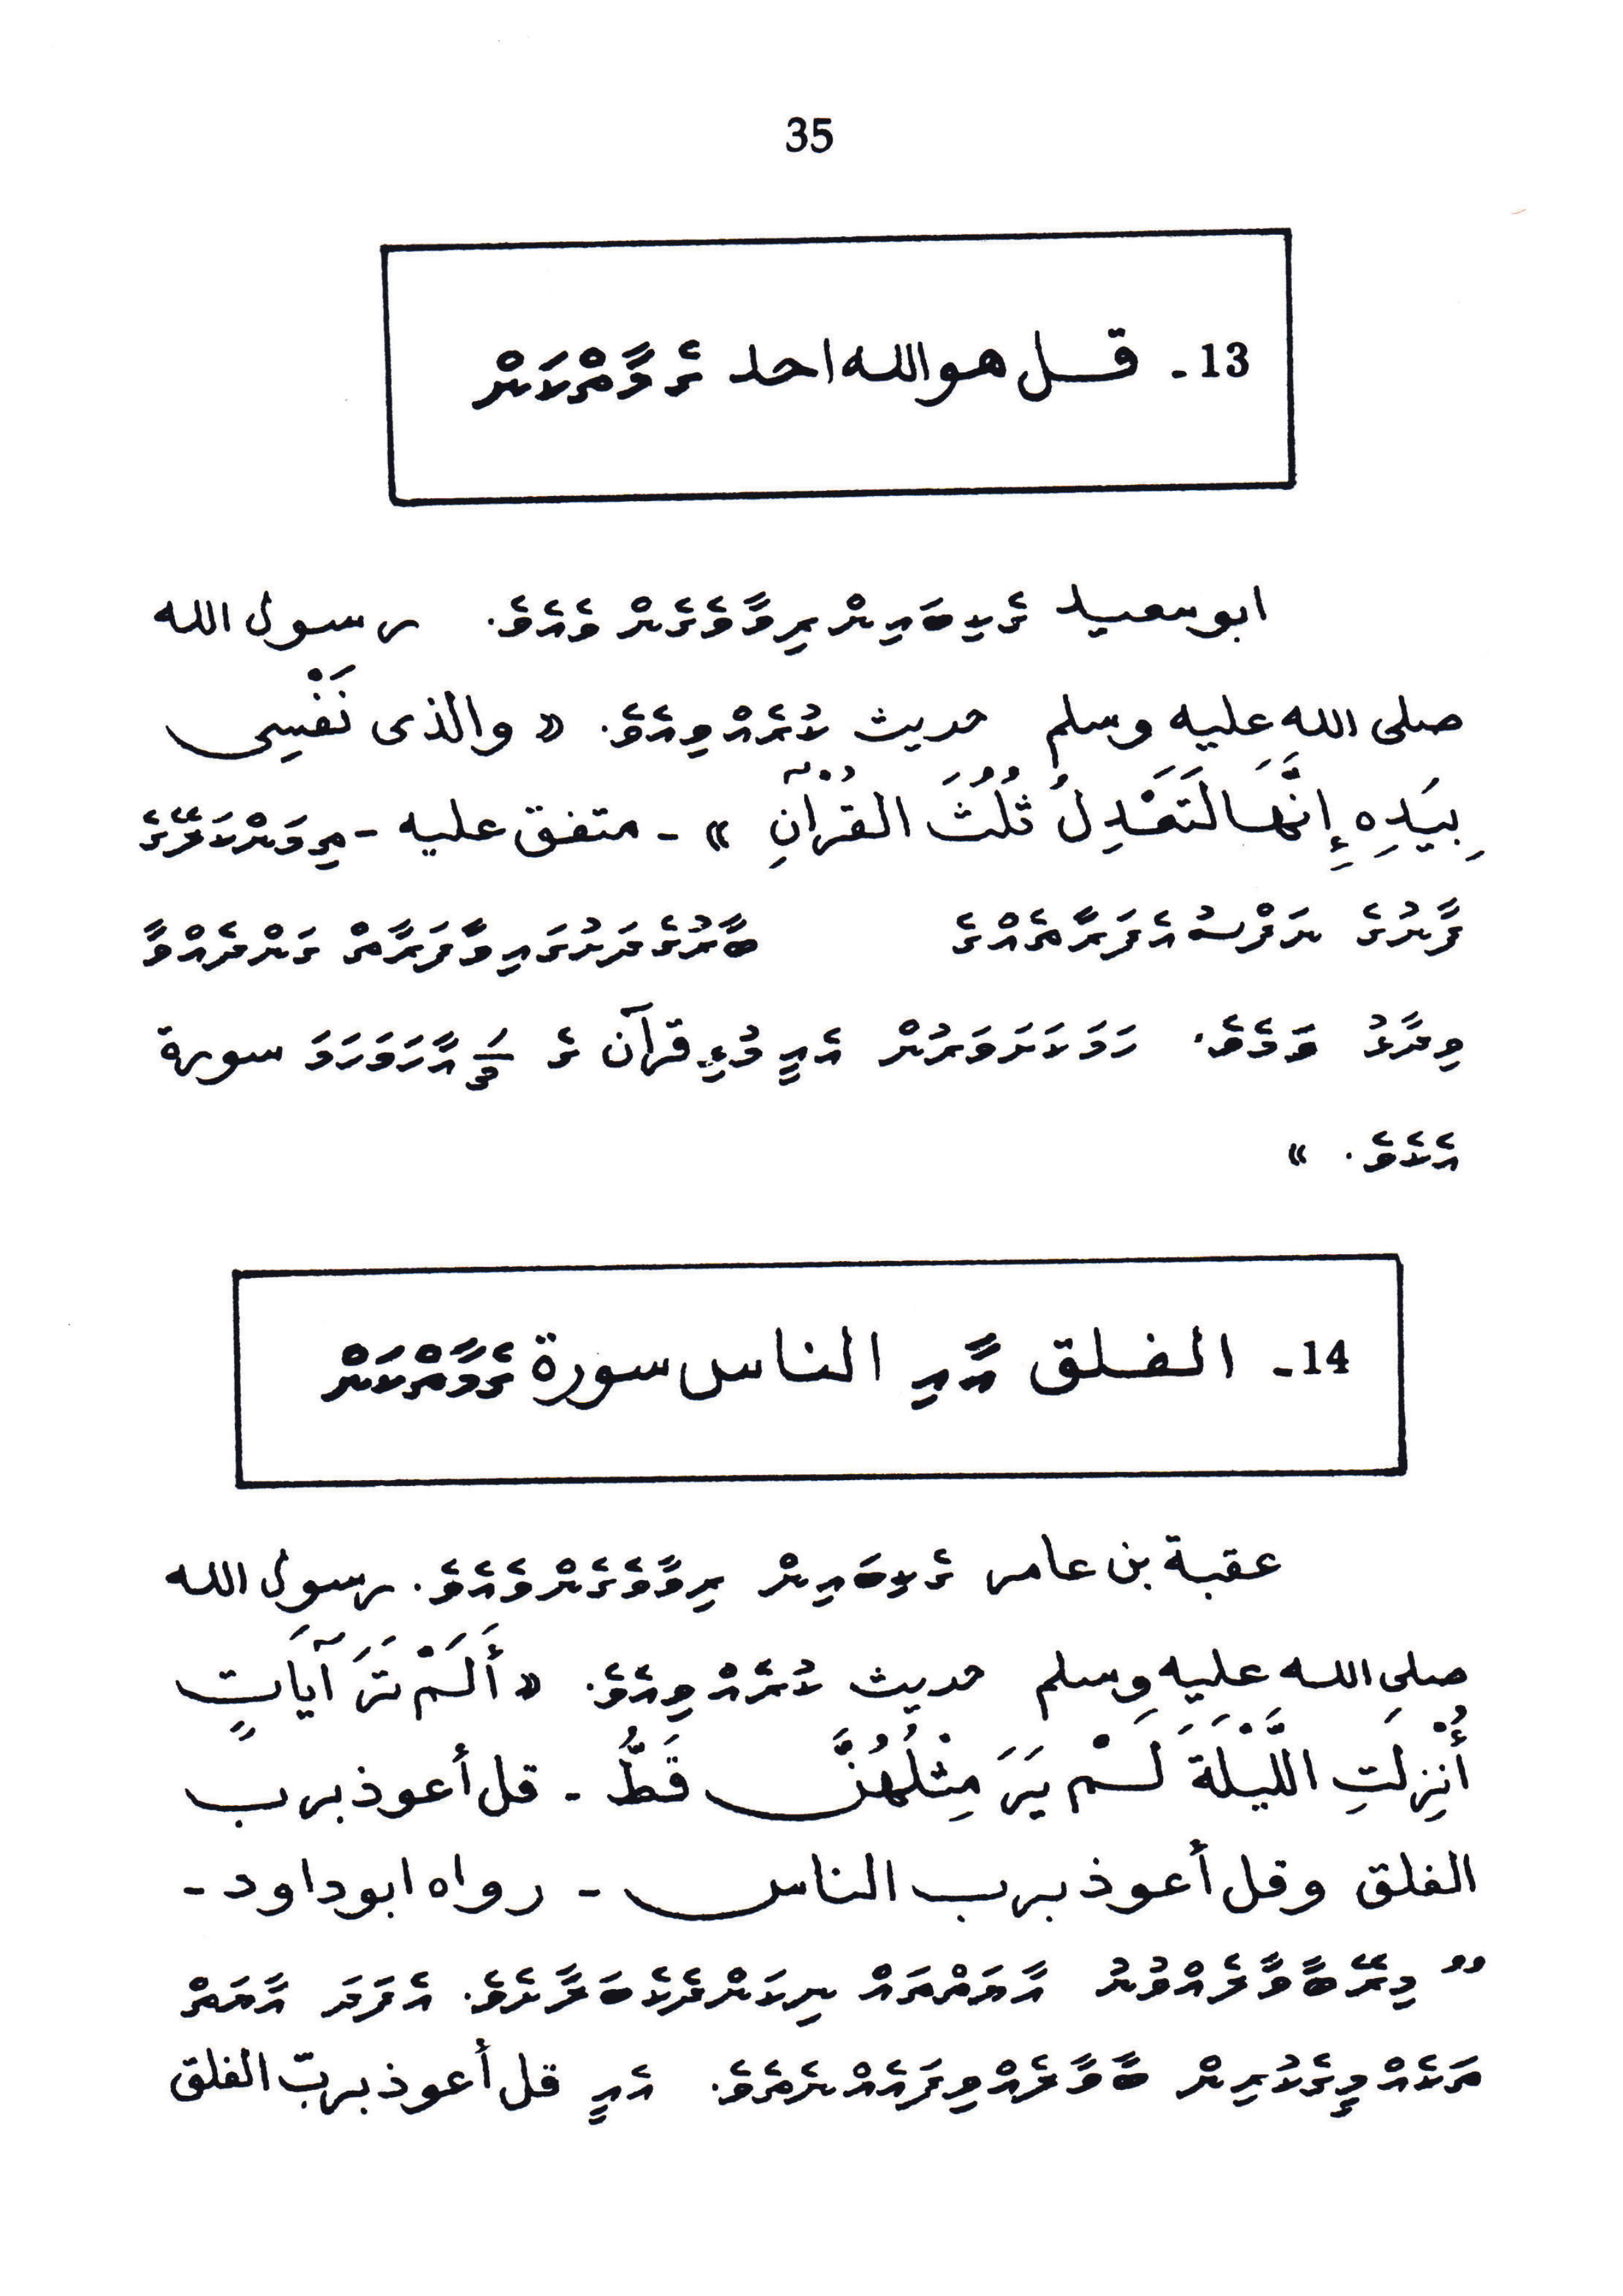 35
13- قل هوالله احد ގެ މާތްކަން
ابوسعيد ގެކިބައިން ރިވާވެގެން ވެއެވެ. رسول الله
صلى الله عليه وسلم حديث ކުރެއްވިއެވެ. « والذى نَفْسِى
بِيَدِهِ إِنَّهَا لَتَعْدِلُ ثُلُثَ القُرْآنِ » - متفق عليه - މިވަންކަލޭގެ
ފާނުގެ ނަފްސު އެފަރާތެއްގެ ބާރުގެދަށުގައިވާފަރާތް ގަންދެއްވާ
ވިދާޅު ވަމެވެ. ހަމަކަށަވަރުން އެއީ މުޅި قرآن ގެ ⅓ އާހަމަހަމަ سورة
އެކެވެ. »
14- الفلق އާއި الناس سورة ގެމާތްކަން
عقبة بن عامر ގެކިބައިން ރިވާވެގެންވެއެވެ. رسول الله
صلى الله عليه وسلم حديث ކުރެއްވިއެވެ. « أَلَمْ تَرَ آيَاتٍ
أُنْزِلَتِ اللَّيْلَةَ لَمْ يَرَ مِثْلُهُنَّ قَطُّ - قل أعوذ برب
الفلق وقل أعوذ برب الناس - رواه ابوداود -
" މިރޭބާވާލެއްވުނު އާޔަތްތައް ނިކަންދެކެބަލާށެވެ. އެފަދަ އާޔަތް
ތަކެއް މީގެކުރިން ބާވާލެއްވިފައެއްނެތެވެ. އެއީ قل أعوذ بربّ الفلق